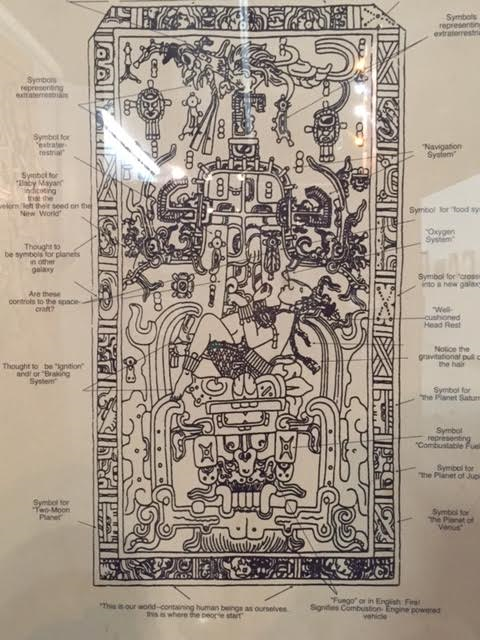 Symbols
representing
extraterrestrials
Symbol for
"extrater-
restrial"
Symbol for
"Baby Mayan"
indicating
that the
left their seed on the
New World"
Thought to
be symbols for planets
in other
galaxy
Are these
controls to the space-
craft?
Thought to be "Ignition"
and/ or "Braking
System"
Symbol for
"Two-Moon
Planet"
Symbols
representing
"Navigation
System"
Symbol for "food
"Oxygen
System"
Symbol for
into a new
"Well-
cushioned
Head Rest
Notice the
gravitational pull
the hair
Symbol for
"the Planet
Symbol
representing
"Combustable
Symbol for
"the Planet of
Symbol for
"the Planet of
Venus"
"This is our world--containing human beings as ourselves.
this is where the people start"
"Fuego" or in English: Fire!
Signifies Combustion- Engine powered
vehicle